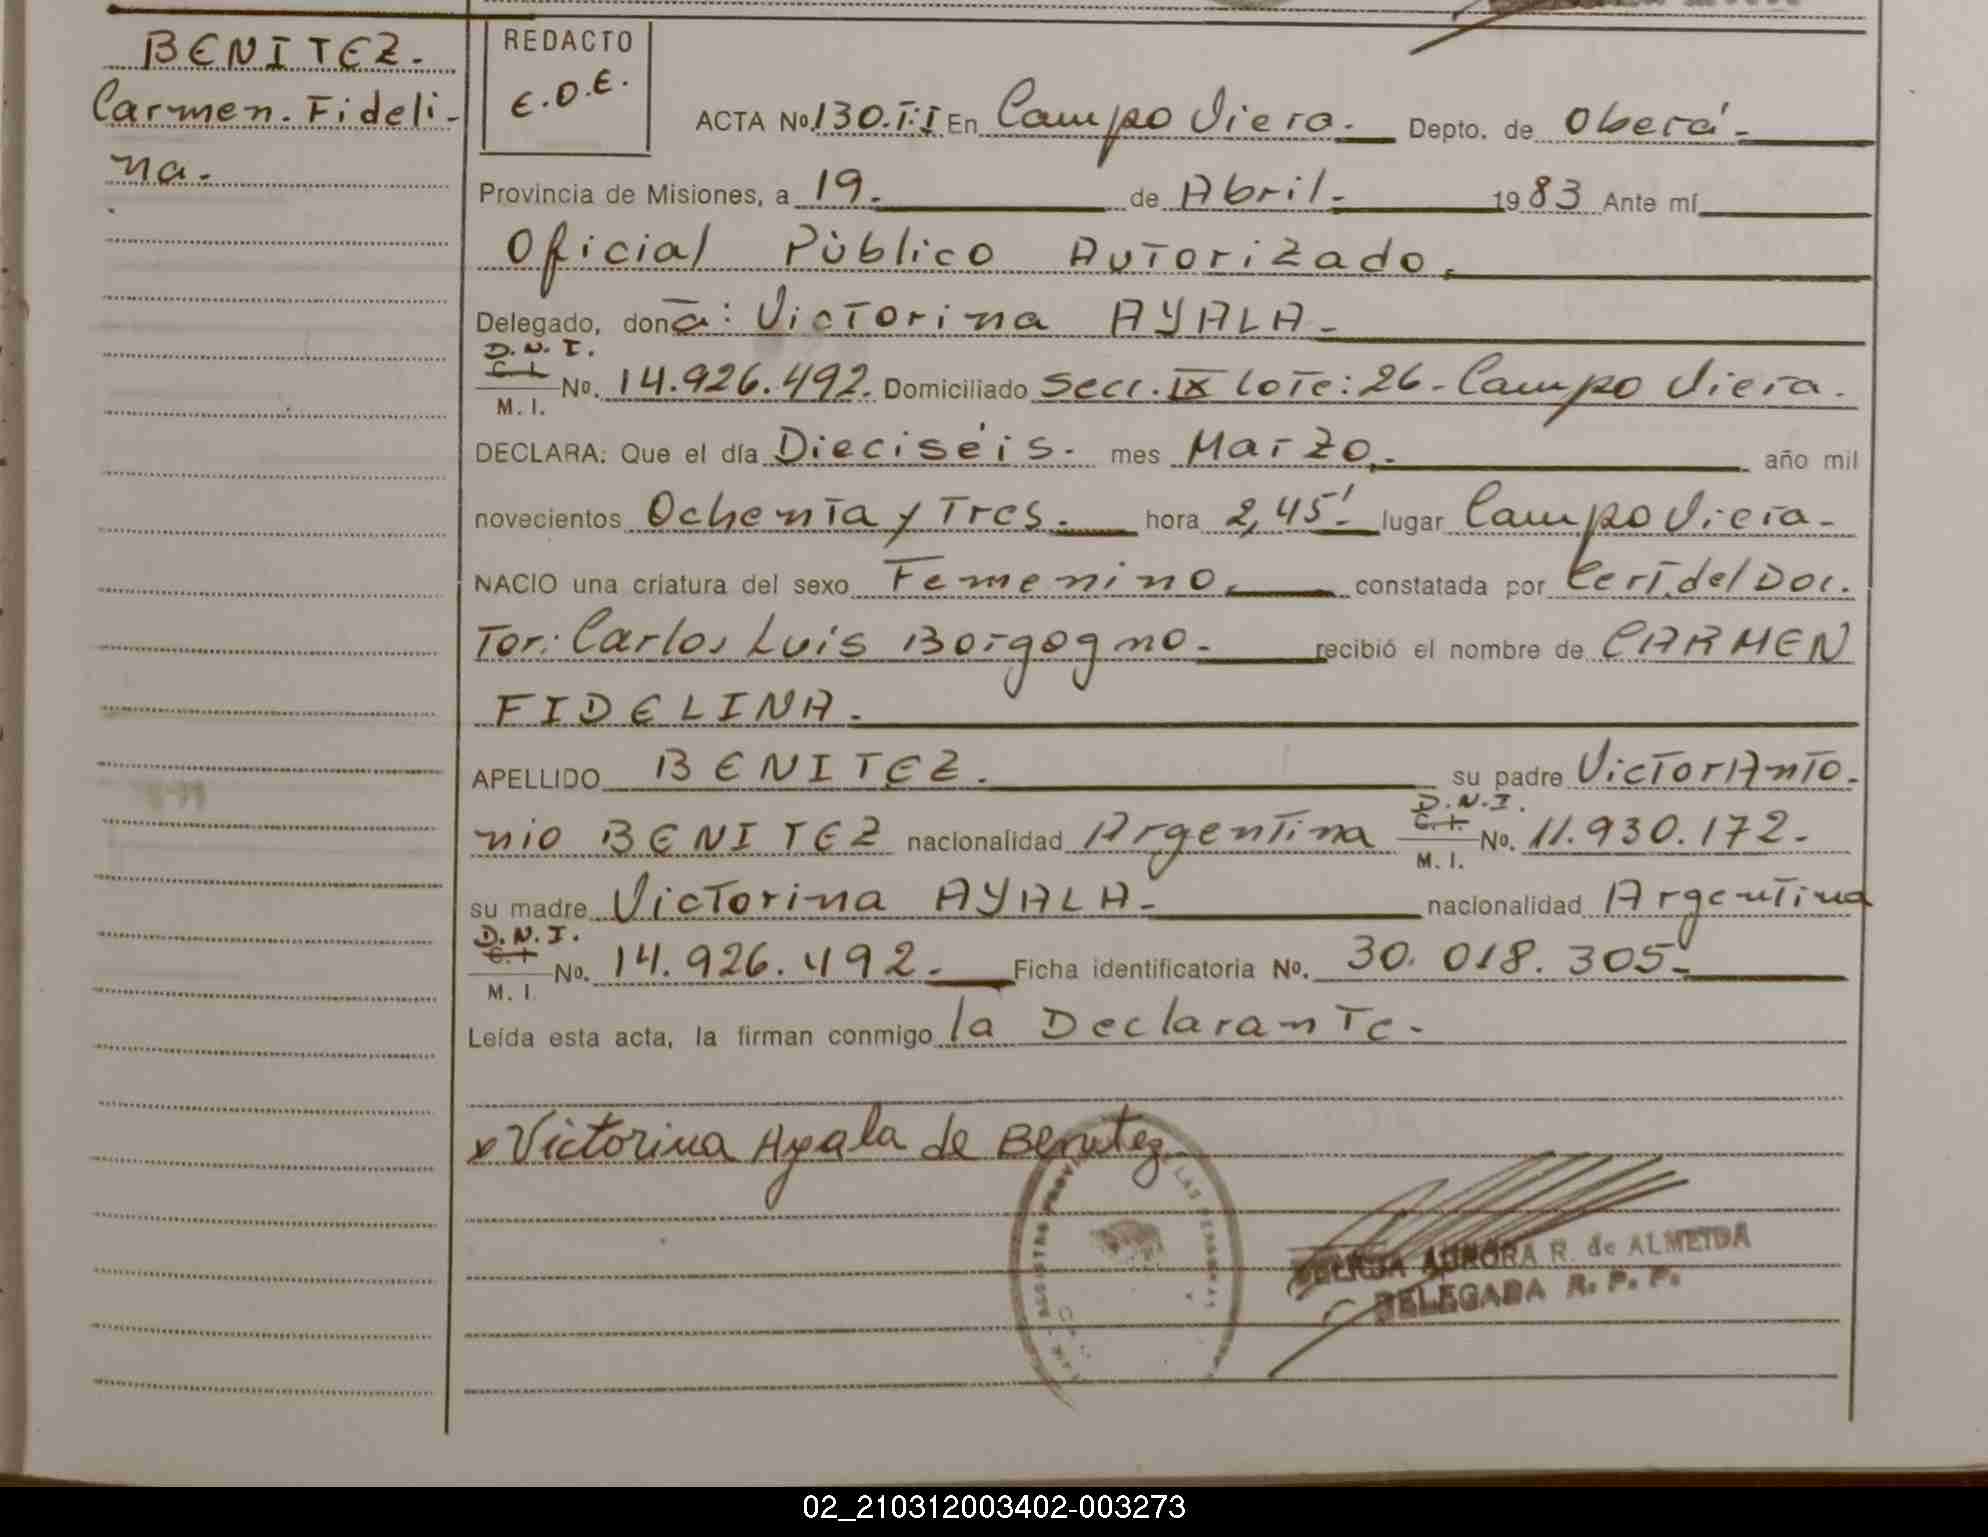 BENITEZ.
Carmen. Fideli-
na.
REDACTO
E.O.E.
ACTA No. 130.T:I En Campo Viera. Depto. de Oberá.
Provincia de Misiones, a 19. de Abril. 1983 Ante mí
Oficial Público Autorizado.
Delegado, donā: Victorina AYALA.
D.N.I.
C. I. No. 14.926.492. Domiciliado Secc. IX Lote: 26. Campo Viera.
M. I.
DECLARA: Que el día Dieciséis. mes Marzo. año mil
novecientos Ochenta y Tres. hora 2,45' lugar Campo Viera.
NACIO una criatura del sexo Femenino. constatada por Cert. del Doc.
Tor: Carlos Luis Borgogno. recibió el nombre de CARMEN
FIDELINA.
APELLIDO BENITEZ. su padre Victor Anto-
nio BENITEZ nacionalidad Argentina D.N.I. C. I. No. 11.930.172.
M. I.
su madre Victorina AYALA. nacionalidad Argentina
D.N.I.
C. I No. 14.926.492. Ficha identificatoria No. 30.018.305.
M. I.
Leída esta acta, la firman conmigo la Declarante.
x Victorina Ayala de Benitez
REGISTRO PROVI DE LAS PERSONAS
AURORA R. de ALMEIDA
DELEGADA R. P. P.
02_210312003402-003273